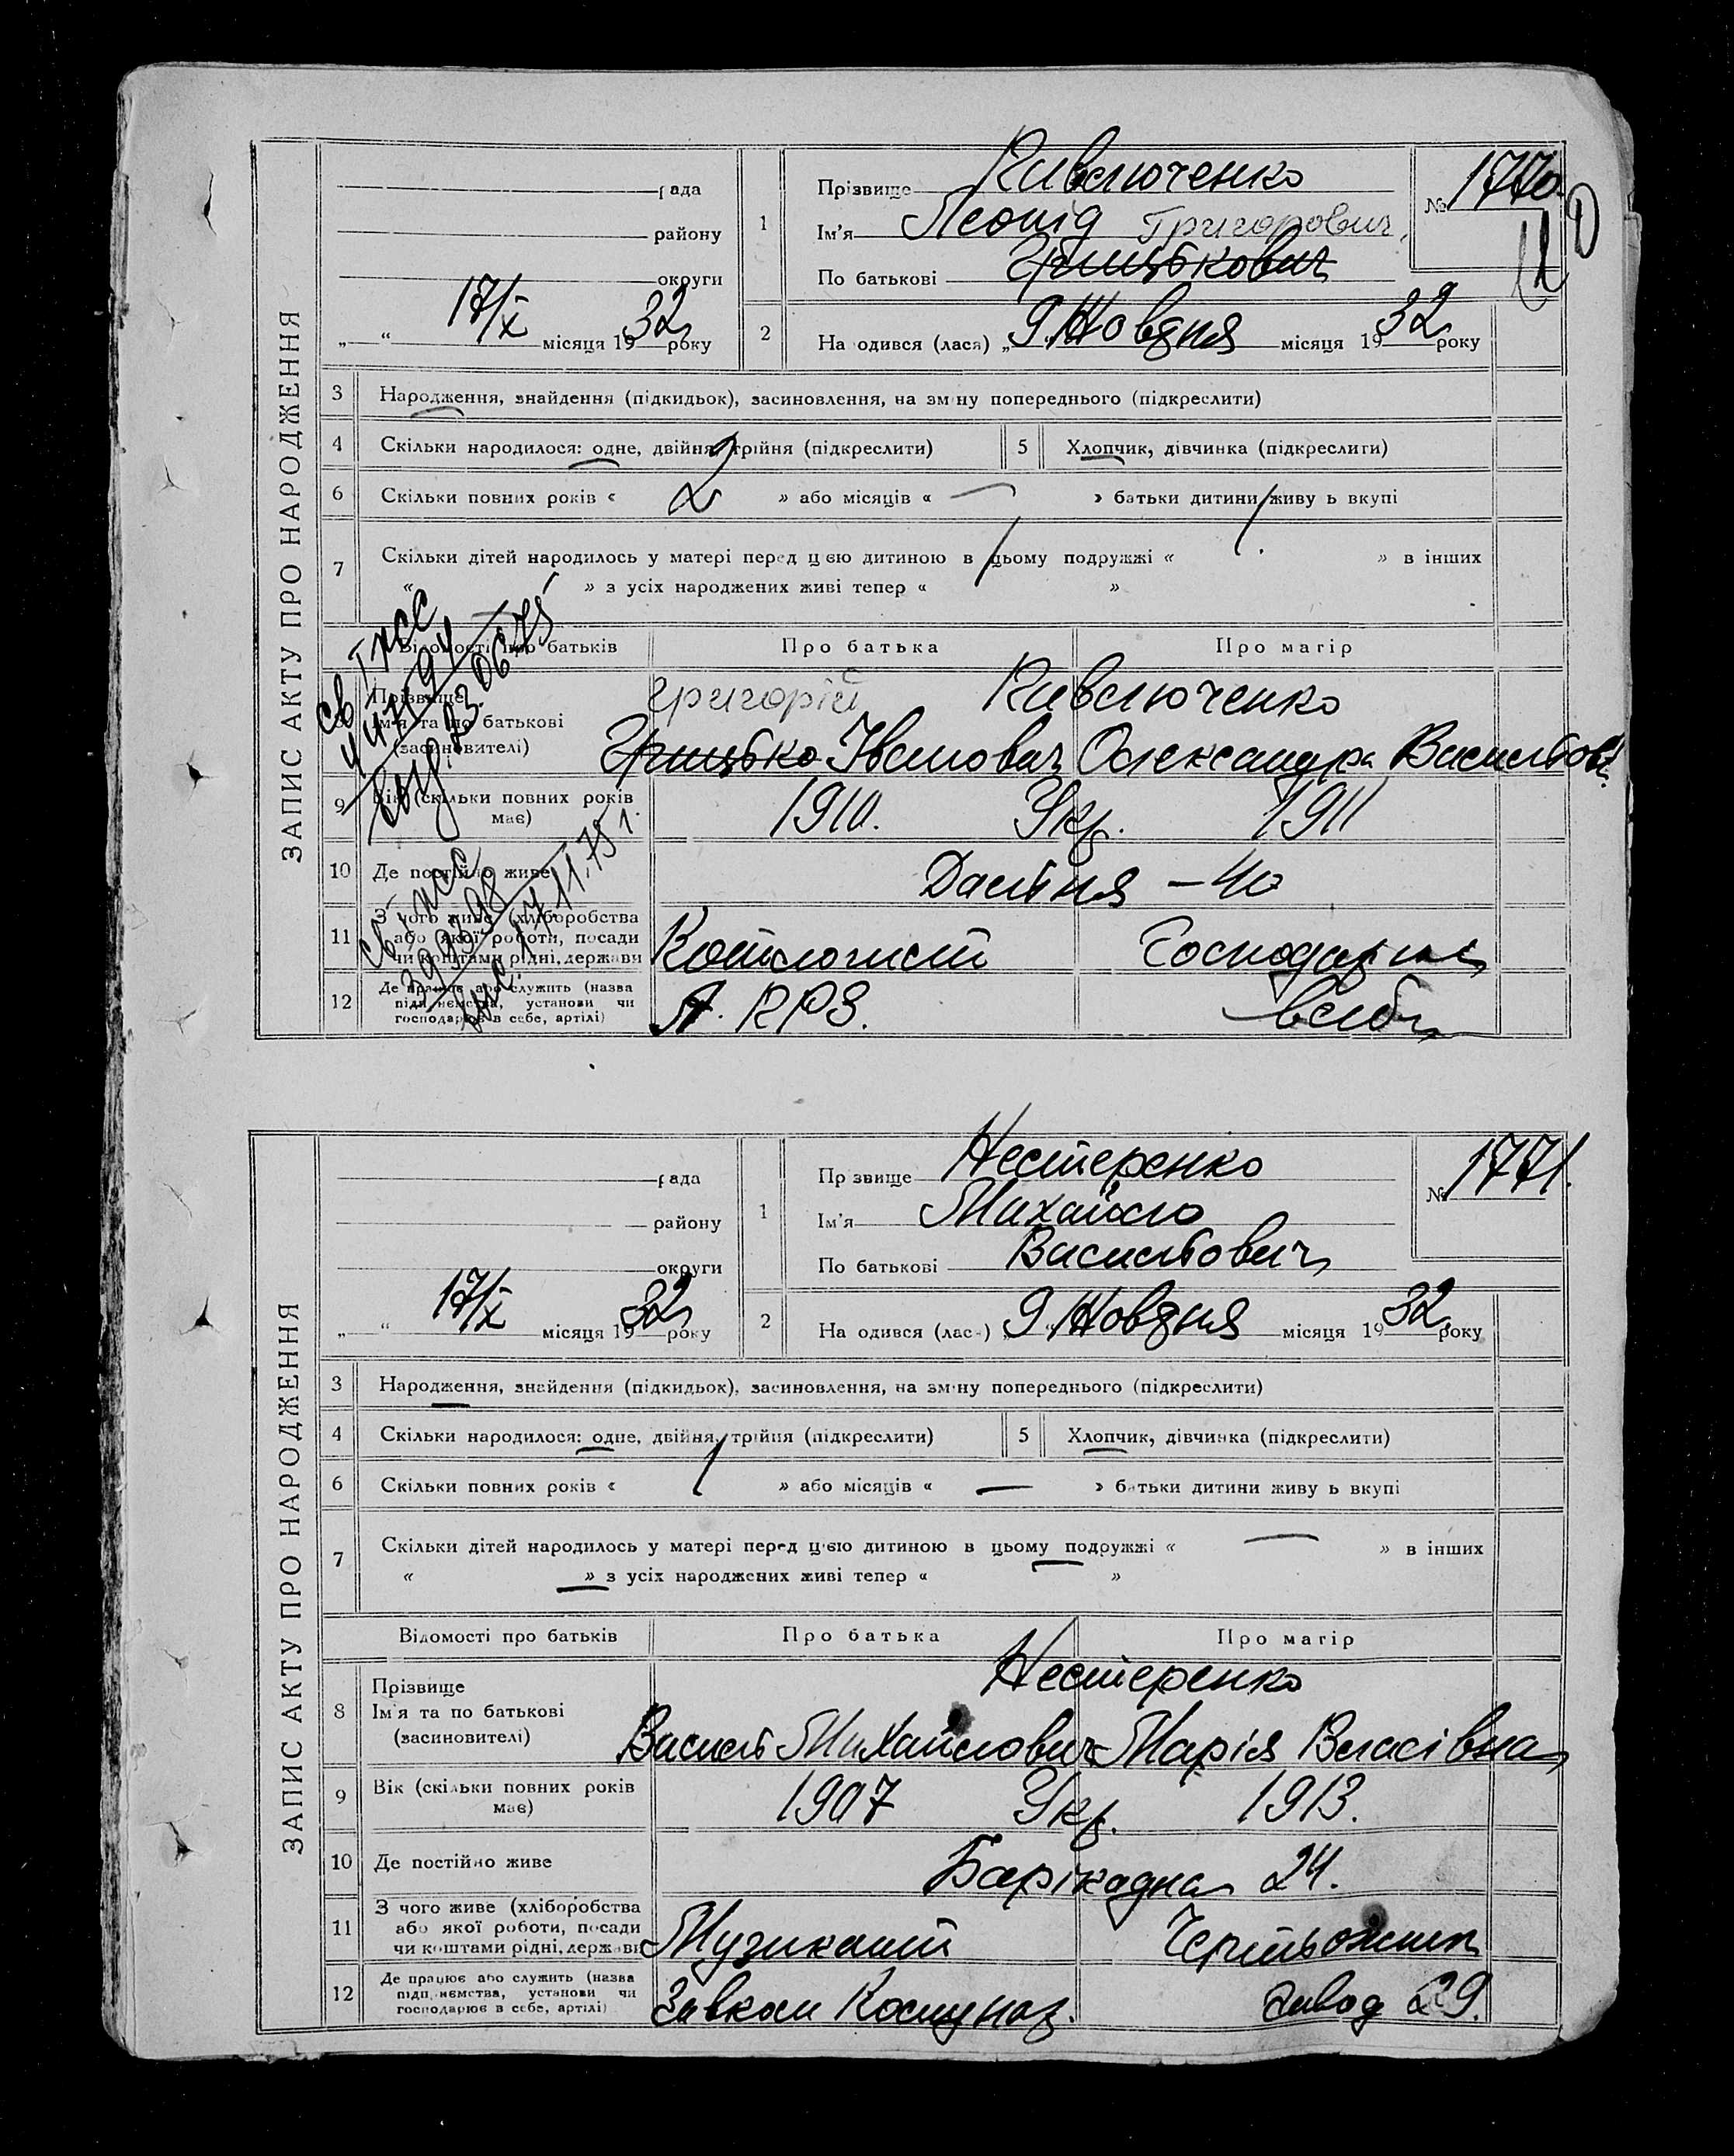 ЗАПИС АКТУ ПРО НАРОДЖЕННЯ
рада
району
округи
„ “ 17/X місяця 1932 року
1
Прізвище Кивлюченко
Ім'я Леонід Григорович
По батькові Грицькович
№ 1770
2
Народився (лася) „9 Жовтня місяця 1932 року
3 Народження, знайдення (підкидьок), засиновлення, на зміну попереднього (підкреслити)
4 Скільки народилося: одне, двійня, трійня (підкреслити)
5 Хлопчик, дівчинка (підкреслити)
6 Скільки повних років « 2 » або місяців « — » батьки дитини живуть вкупі
7 Скільки дітей народилось у матері перед цією дитиною в цьому подружжі « 1 » в інших
« » з усіх народжених живі тепер « »
Відомості про батьків
Про батька
Про матір
8 Прізвище
Ім'я та по батькові
(засиновителі)
Григорій Кивлюченко
Грицько Іванович Олександра Васильов.
9 Вік (скільки повних років має)
1910. Укр. 1911
10 Де постійно живе
– 40
11 З чого живе (хліборобства
або якої роботи, посади
чи коштами рідні, держави
Господарка
12 Де працює або служить (назва
підприємства, установи чи
господарює в себе, артілі)
17.11.75 г.
ЗАПИС АКТУ ПРО НАРОДЖЕННЯ
рада
району
округи
„ “ 17/X місяця 1932 року
1
Прізвище Нестеренко
Ім'я Михайло
По батькові Васильович
№ 1771.
2
Народився (лася) „9 Жовтня місяця 1932 року
3 Народження, знайдення (підкидьок), засиновлення, на зміну попереднього (підкреслити)
4 Скільки народилося: одне, двійня, трійня (підкреслити)
5 Хлопчик, дівчинка (підкреслити)
6 Скільки повних років « 1 » або місяців « — » батьки дитини живуть вкупі
7 Скільки дітей народилось у матері перед цією дитиною в цьому подружжі « — » в інших
« — » з усіх народжених живі тепер « »
Відомості про батьків
Про батька
Про матір
8 Прізвище
Ім'я та по батькові
(засиновителі)
Нестеренко
Василь Михайлович Марія Власівна
9 Вік (скільки повних років має)
1907 Укр. 1913.
10 Де постійно живе
Барікадна 24.
11 З чого живе (хліборобства
або якої роботи, посади
чи коштами рідні, держави
Музикант
Чертьожниц
12 Де працює або служить (назва
підприємства, установи чи
господарює в себе, артілі)
Завком Комунар.
завод 29.